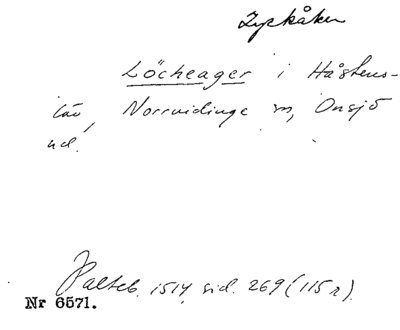 Lyckåker
Löckeager i Håstens-
löv, Norrvidinge sn, Onsjö
hd.
Palteb. 1514, sid. 269 (115 r).
Nr 6571.